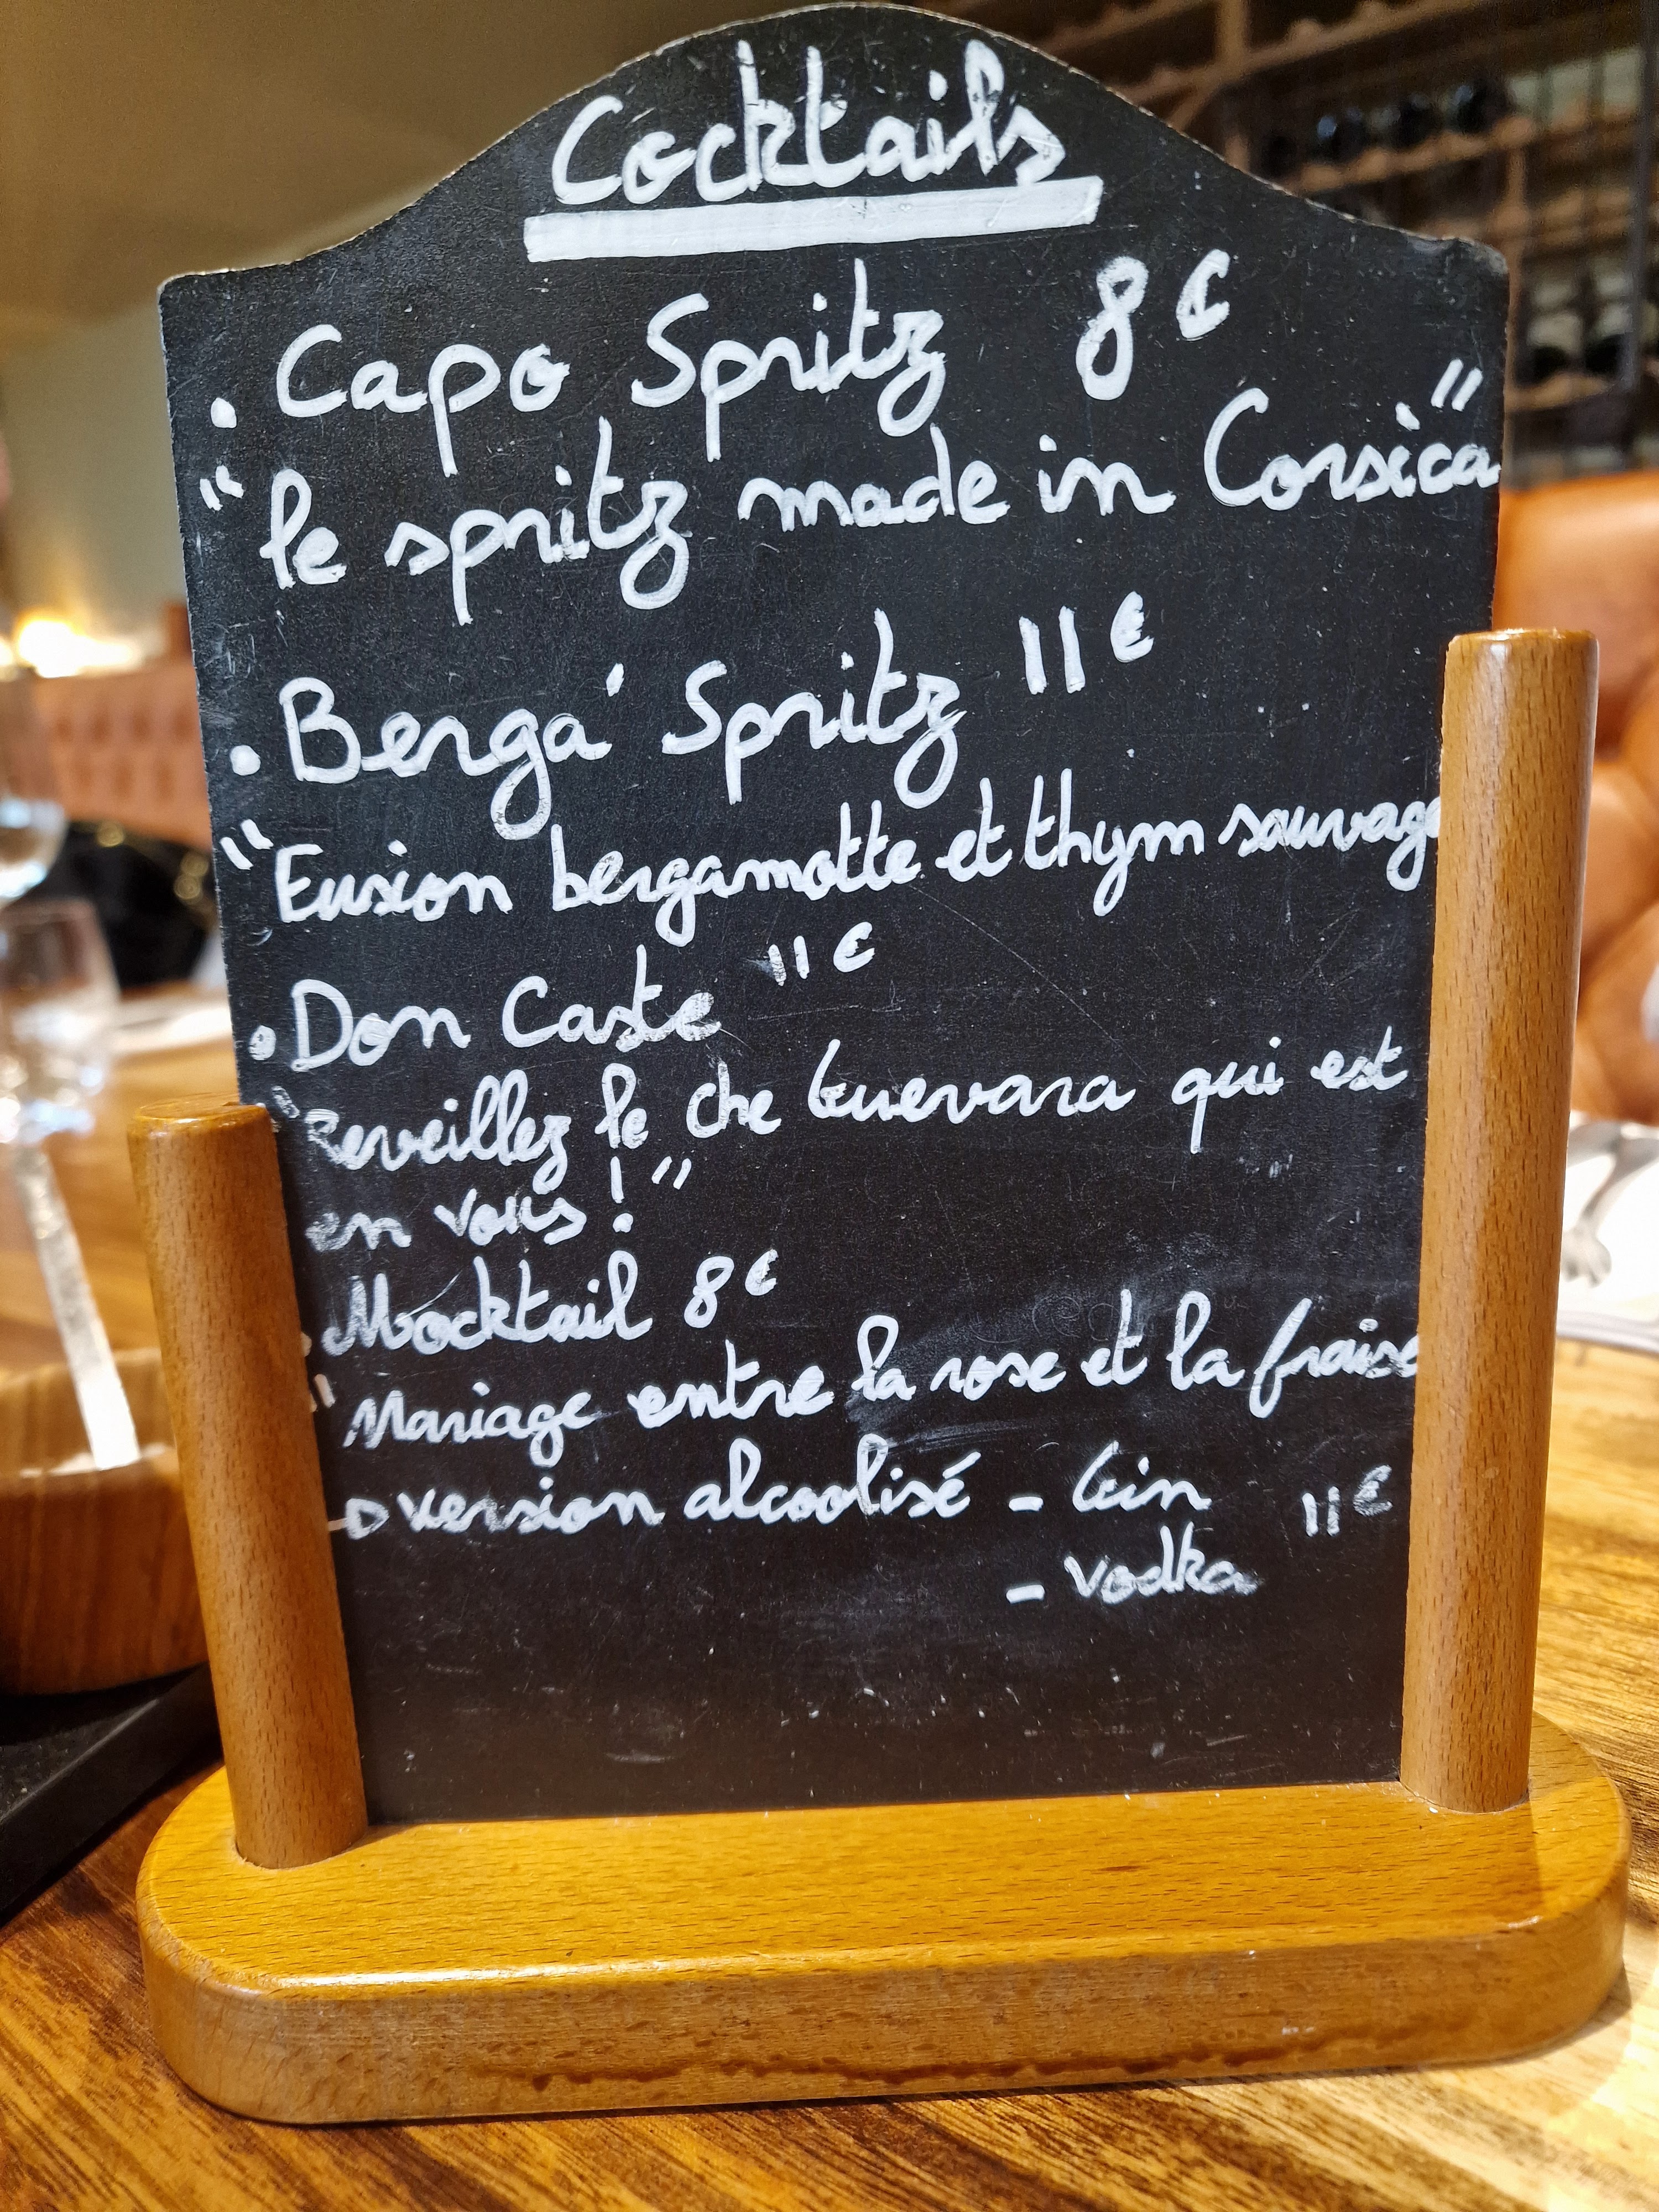 Cocktails
• Capo Spritz 8€
"le spritz made in Corsica"
• Berga' Spritz 11€
"Fusion bergamotte et thym sauvage
• Don Caste 11€
"Reveillez le che Guevara qui est
en vous !"
• Mocktail 8€
"Mariage entre la rose et la fraise
→ version alcoolisé - Gin 11€
- vodka